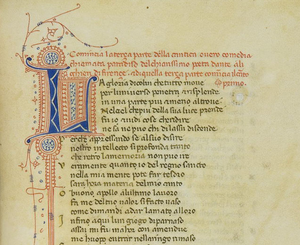 Comincia la terça parte della cantica overo comedia
chiamata paradiso del chiarissimo poeta dante ali
ghieri di firençe
primo
La gloria di colui che tutto move
per l universo penetra & risplende
in una parte piu & meno altrove
Nel ciel che piu della sua luce prende
fu io & vidi cose che ridire
ne sa ne puo chi di lassu discende
che apressando se al suo disire
nostro intellecto si profonda tanto
che retro la memoria non puo ire
Veramente quant io del regno sancto
nella mia mente pote far tesoro
sara hora materia del mio canto
O buono apollo all ultimo lavoro
fa me del tuo valor si facto vaso
come dimandi a dar l amato alloro
Infino a qui l un giogo di parnaso
assai mi fu ma hor con amendue
m e huopo entrar nell aringo rimaso